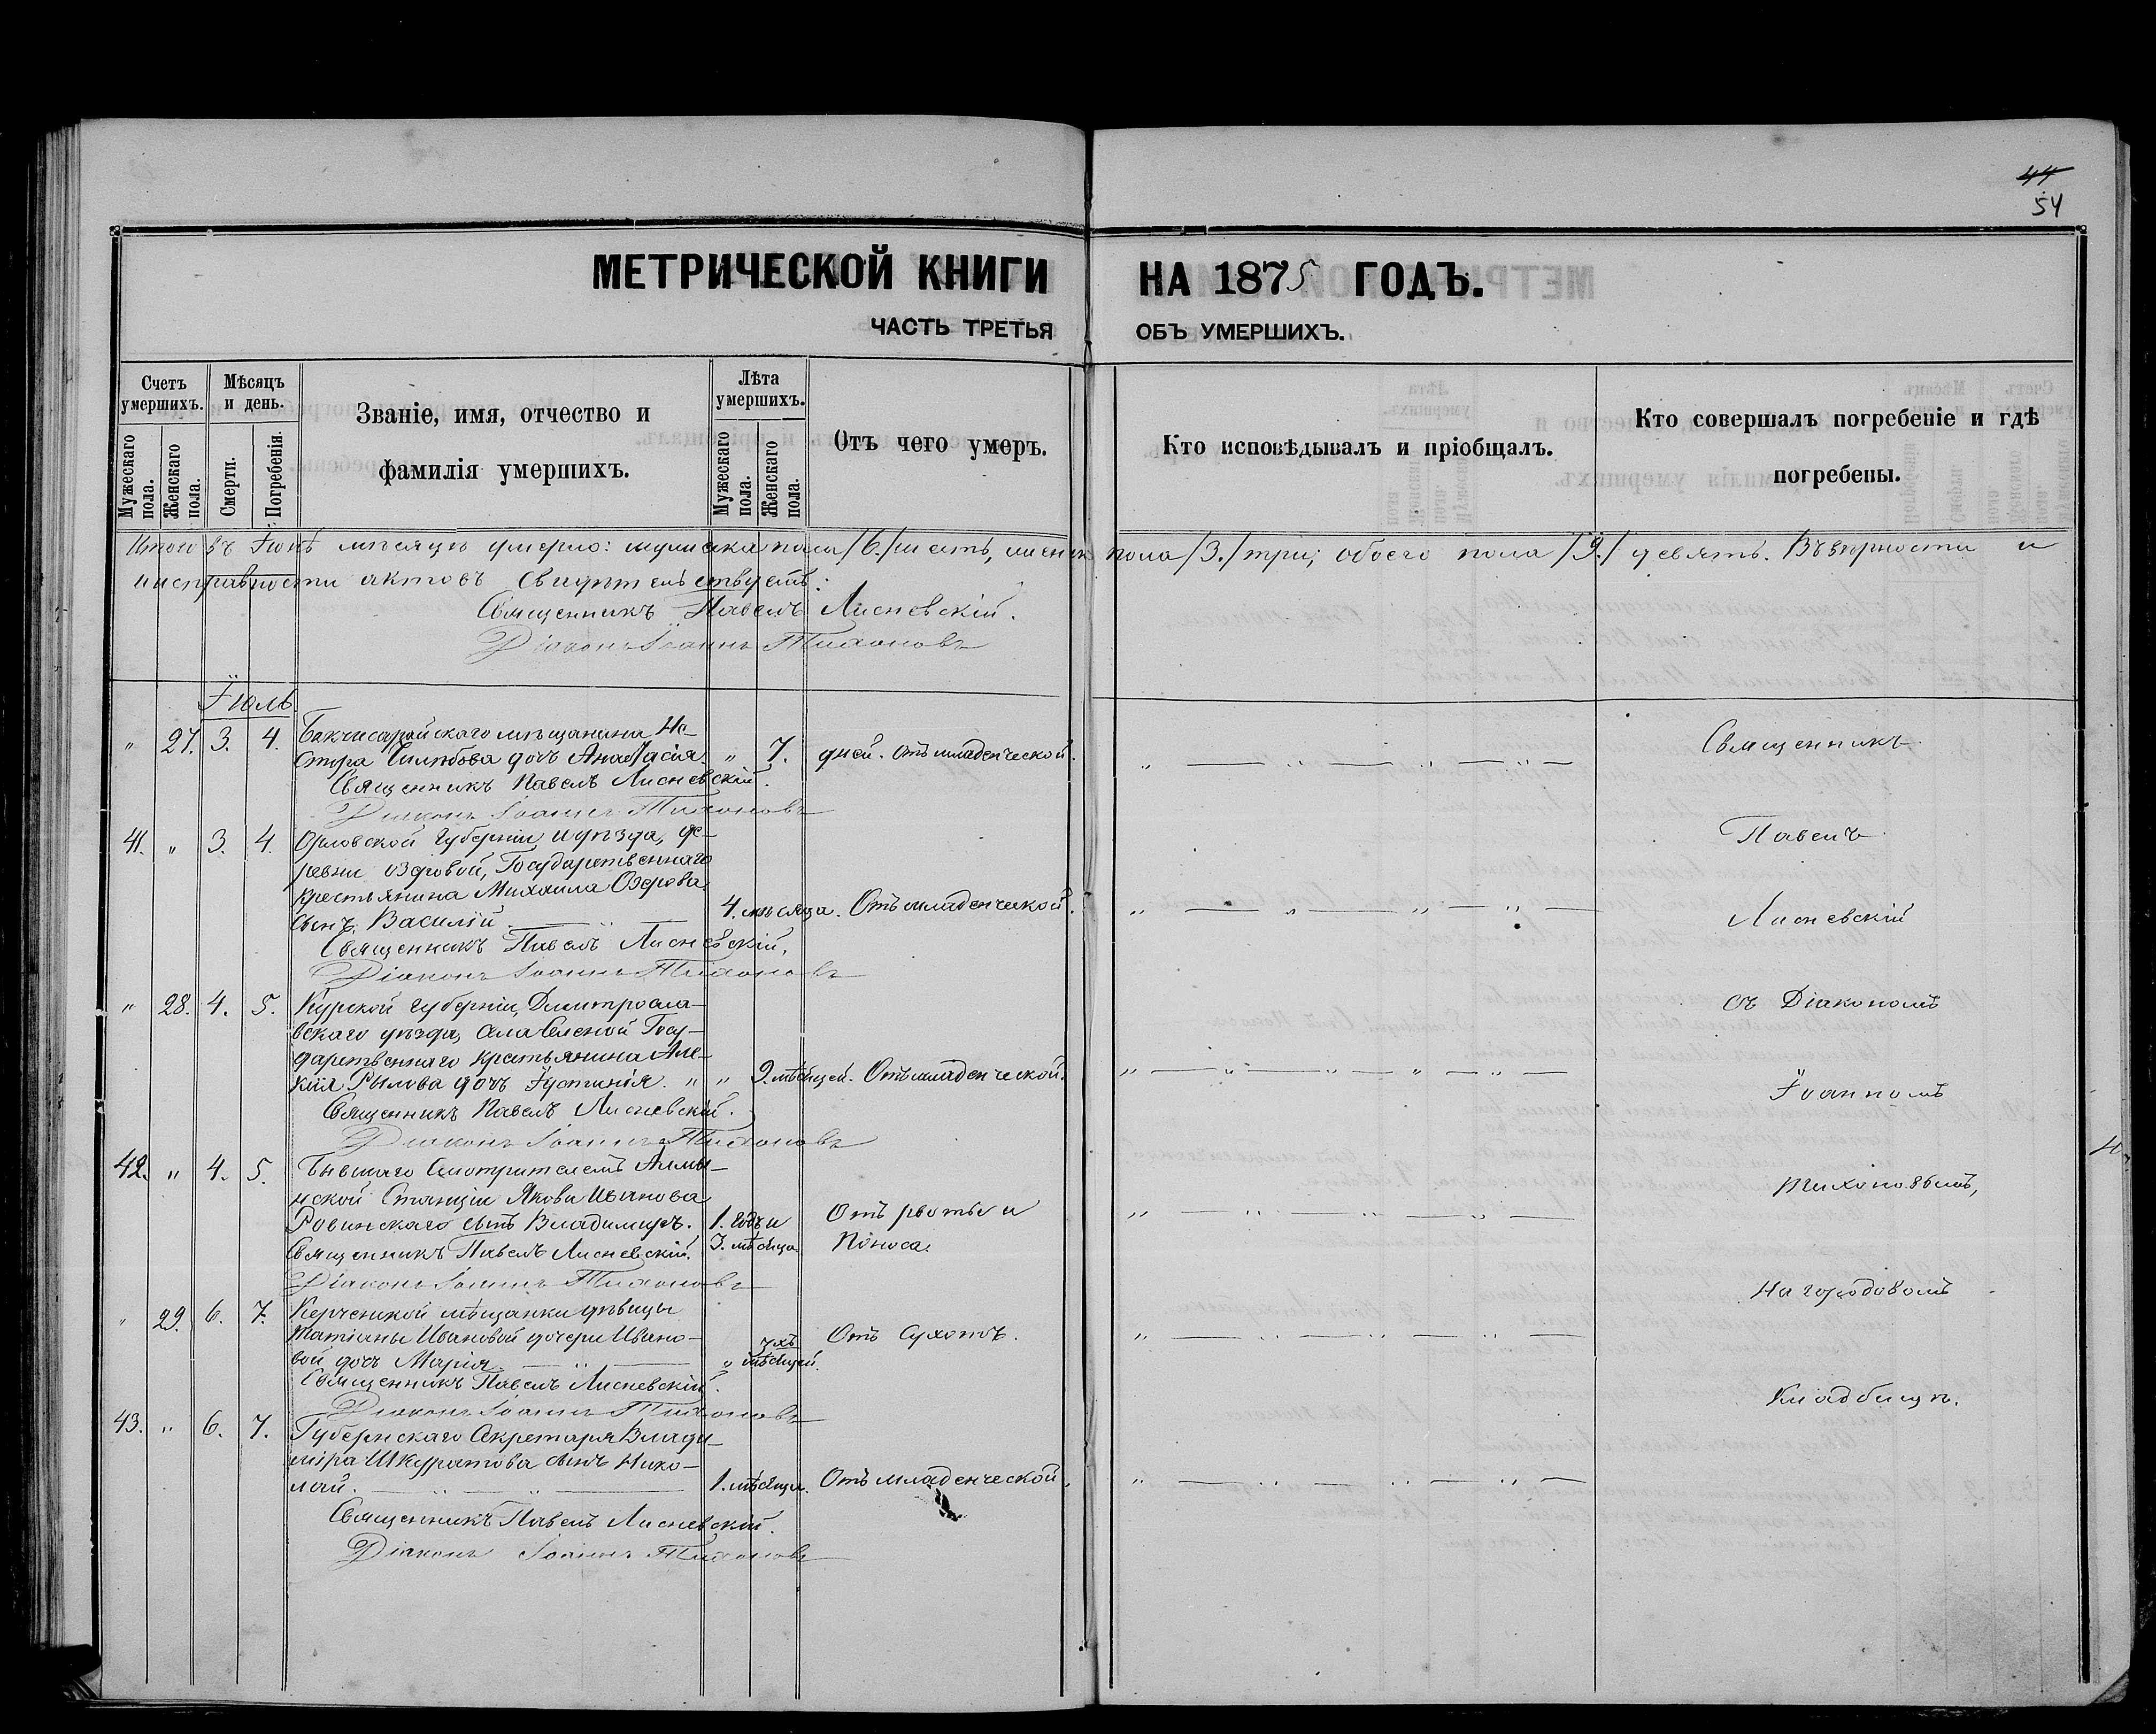 44
54
МЕТРИЧЕСКОЙ КНИГИ НА 1875 ГОДЪ.
ЧАСТЬ ТРЕТЬЯ ОБЪ УМЕРШИХЪ.
Счетъ умершихъ.
Мужескаго пола.
Женскаго пола.
Мѣсяцъ и день.
Смерти.
Погребенія.
Званіе, имя, отчество и
фамилія умершихъ.
Лѣта умершихъ.
Мужескаго пола.
Женскаго пола.
Отъ чего умеръ.
Кто исповѣдывалъ и пріобщалъ.
Кто совершалъ погребеніе и гдѣ
погребены.
Итого въ Іюнѣ мѣсяцѣ умерло: мужска пола /6./ шесть, женск пола /3./ три; обоего пола /9./ девять. Въ вѣрности и
исправности актовъ свидѣтельствуетъ:
Священникъ Павелъ Лисневскій.
Діаконъ Іоаннъ Тихоновъ
Іюль.
" 27. 3. 4. Бакчисарайскаго мѣщанина Не-
стра дочь Анастасія. " 7. дней. Отъ младенческой.
Священникъ Павелъ Лисневскій.
Діаконъ Іоаннъ Тихоновъ
41. " 3. 4. Орловской Губерніи и уѣзда, де-
ревни Озеровой, Государственнаго
крестьянина Михаила Озерова
сынъ Василій. 4. мѣсяца. Отъ младенческой.
Священникъ Павелъ Лисневскій.
Діаконъ Іоаннъ Тихоновъ
" 28. 4. 5. Курской Губерніи, Димитросла-
вскаго уѣзда, села Госу-
дарственнаго крестьянина Але-
ксія Рылова дочь Іустинія. " " 9. мѣсяцей. Отъ младенческой.
Священникъ Павелъ Лисневскій.
Діаконъ Іоаннъ Тихоновъ
42. " 4. 5. Бывшаго Смотрителемъ Алмы-
нской Станціи Якова Иванова
Ровинскаго сынъ Владимиръ. 1. годъ и Отъ рвоты и
Священникъ Павелъ Лисневскій. 3. мѣсяца поноса.
Діаконъ Іоаннъ Тихоновъ
" 29. 6. 7. Керченской мѣщанки дѣвицы
Татіаны Ивановой дочери Ивано-
вой дочь Марія. " мѣсяцей. Отъ Сухотъ.
Священникъ Павелъ Лисневскій.
Діаконъ Іоаннъ Тихоновъ
43. " 6. 7. Губернскаго Секретаря Влади-
міра Шкуратова сынъ Нико-
лай. 1. мѣсяца. Отъ младенческой.
Священникъ Павелъ Лисневскій.
Діаконъ Іоаннъ Тихоновъ
Священникъ
Павелъ
Лисневскій
съ Діакономъ
Іоанномъ
Тихоновымъ,
на городовомъ
кладбищѣ.